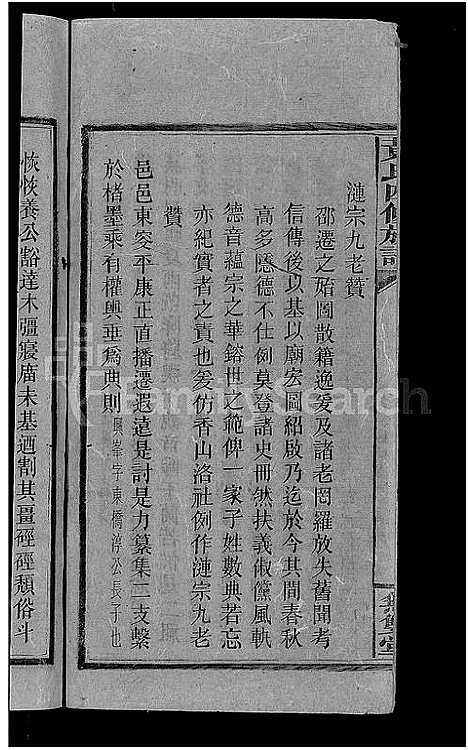 黃氏四修族譜
漣宗九老贊
邵遷之始圖散籍逸爰及諸老罔羅放失舊聞考
信傳後以基以廟宏圖紹啟乃迄於今其間春秋
高多隱德不仕例莫登諸史冊然扶義俶儻風軌
德音蘊宗之華鎔世之範俾一家子姓數典若忘
亦紀實者之責也爰仿香山洛社例作漣宗九老
贊
邑邑東窔平康正直播遷遐遠是討是力纂集二支繫
於楮墨乘有權輿垂爲典則峯字東僑淳公長子也
恢恢養公豁達木彊寢廣未基迺割其畺硜硜頹俗斗
FamilySearch